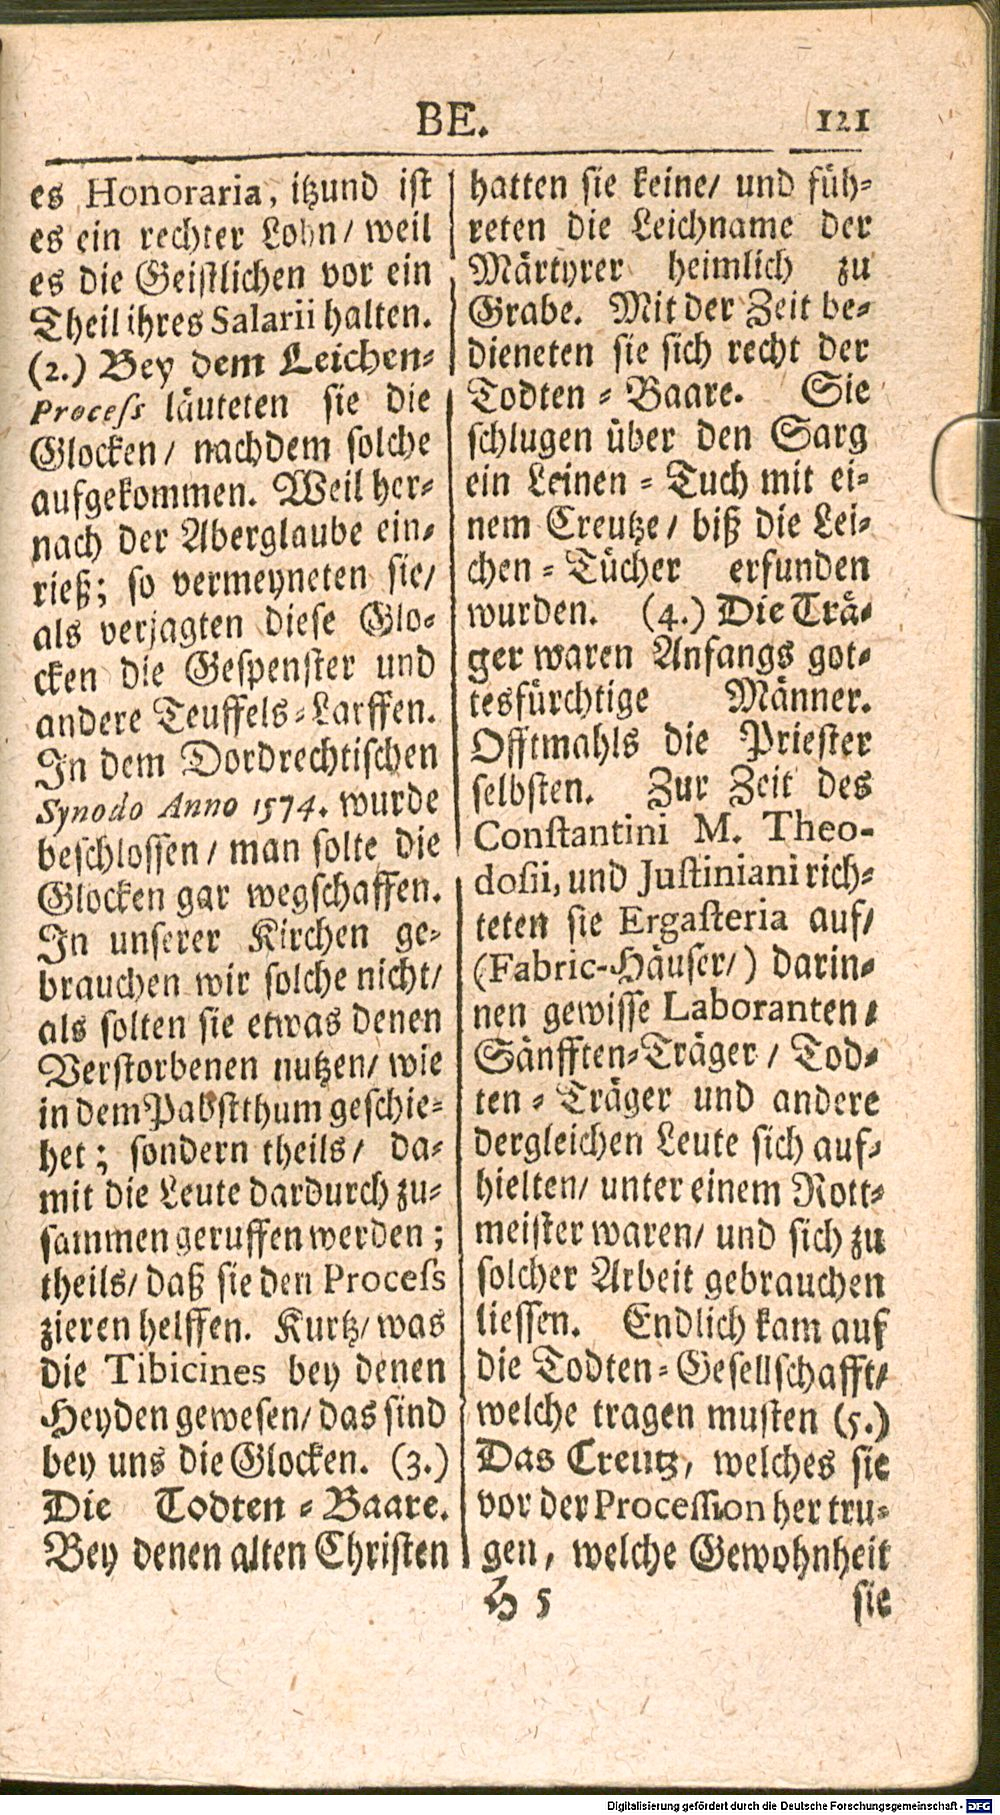 BE.
121
es Honoraria, itzund ist
es ein rechter Lohn/ weil
es die Geistlichen vor ein
Theil ihres Salarii halten.
(2.) Bey dem Leichen-
Process läuteten sie die
Glocken/ nachdem solche
aufgekommen. Weil her-
nach der Aberglaube ein-
rieß; so vermeyneten sie/
als verjagten diese Glo-
cken die Gespenster und
andere Teuffels-Larffen.
In dem Dordrechtischen
Synodo Anno 1574. wurde
beschlossen/ man solte die
Glocken gar wegschaffen.
In unserer Kirchen ge-
brauchen wir solche nicht/
als solten sie etwas denen
Verstorbenen nutzen/ wie
in dem Pabstthum geschie-
het; sondern theils/ da-
mit die Leute dardurch zu-
sammen geruffen werden;
theils/ daß sie den Process
zieren helffen. Kurtz/ was
die Tibicines bey denen
Heyden gewesen/ das sind
bey uns die Glocken. (3.)
Die Todten-Baare.
Bey denen alten Christen
hatten sie keine/ und füh-
reten die Leichname der
Märtyrer heimlich zu
Grabe. Mit der Zeit be-
dieneten sie sich recht der
Todten-Baare. Sie
schlugen über den Sarg
ein Leinen-Tuch mit ei-
nem Creutze/ biß die Lei-
chen-Tücher erfunden
wurden. (4.) Die Trä-
ger waren Anfangs got-
tesfürchtige Männer.
Offtmahls die Priester
selbsten. Zur Zeit des
Constantini M. Theo-
dosii, und Justiniani rich-
teten sie Ergasteria auf/
(Fabric-Häuser/) darin-
nen gewisse Laboranten/
Sänfften-Träger/ Tod-
ten-Träger und andere
dergleichen Leute sich auf-
hielten/ unter einem Rott-
meister waren/ und sich zu
solcher Arbeit gebrauchen
liessen. Endlich kam auf
die Todten-Gesellschafft/
welche tragen musten (5.)
Das Creutz, welches sie
vor der Procession her tru-
gen, welche Gewohnheit
H 5
sie
Digitalisierung gefördert durch die Deutsche Forschungsgemeinschaft - DFG